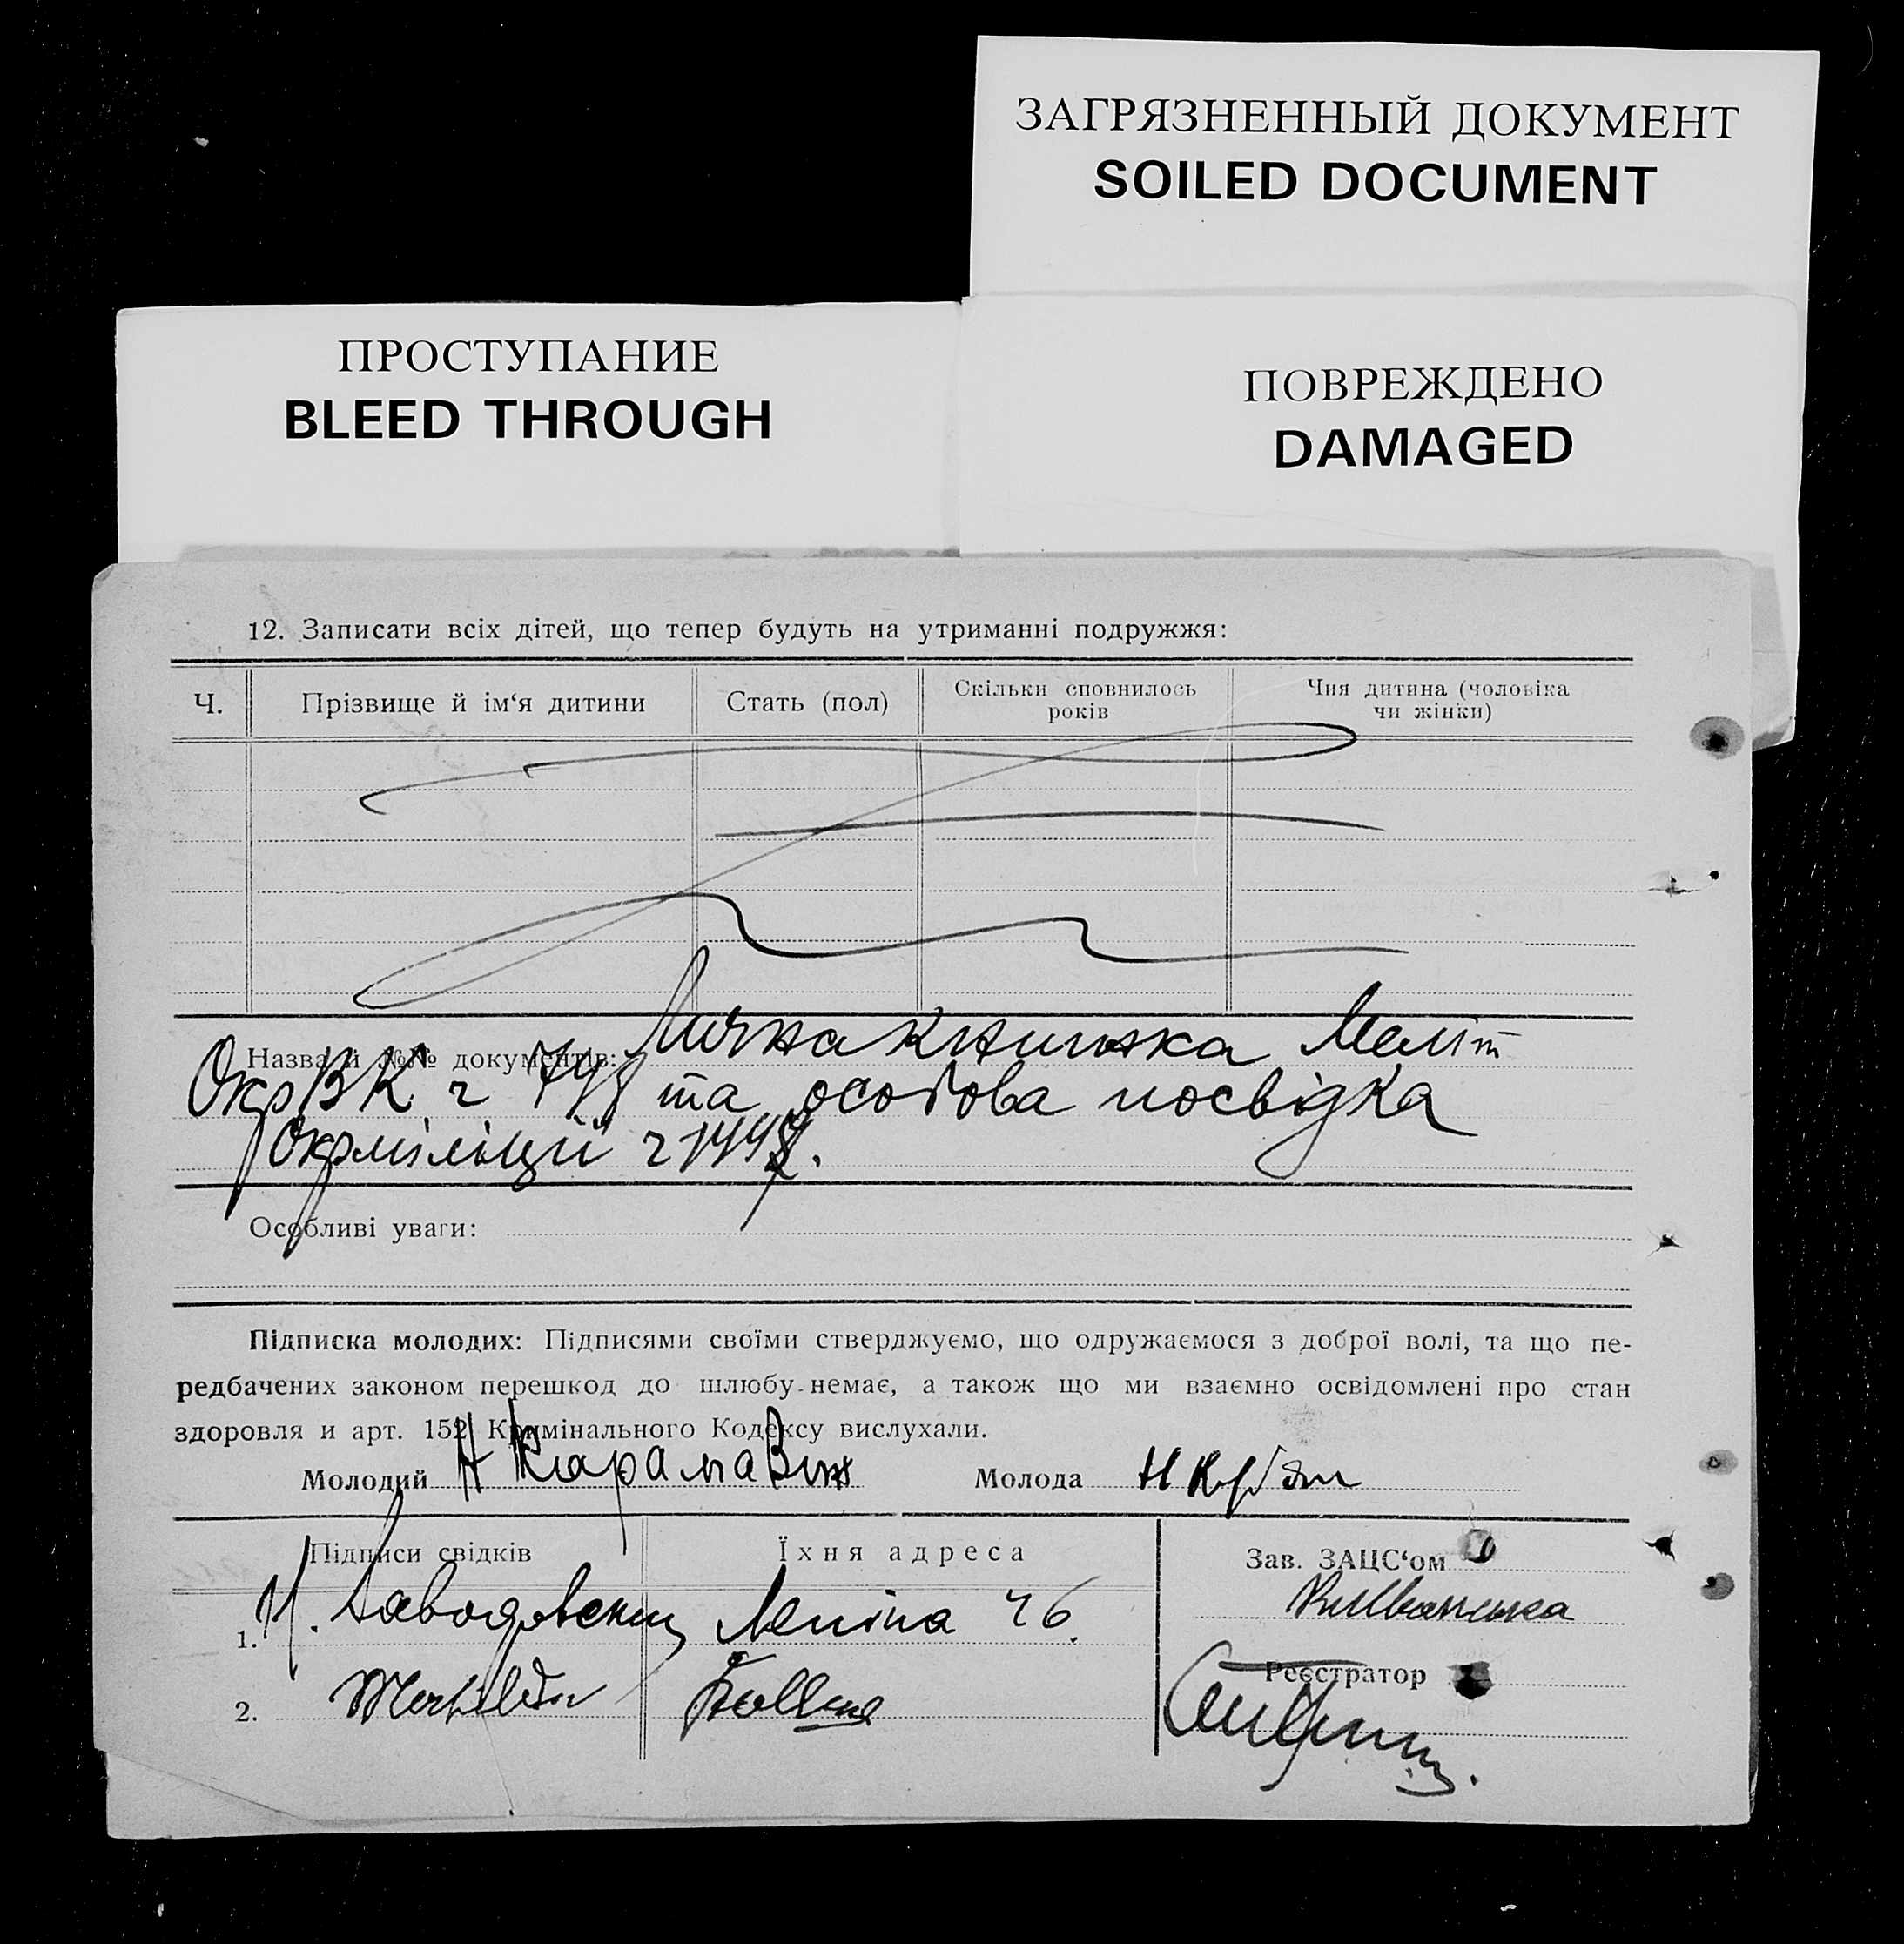 ЗАГРЯЗНЕННЫЙ ДОКУМЕНТ
SOILED DOCUMENT
ПРОСТУПАНИЕ
BLEED THROUGH
ПОВРЕЖДЕНО
DAMAGED
12. Записати всіх дітей, що тепер будуть на утриманні подружжя:
Ч.
Прізвище й ім‘я дитини
Стать (пол)
Скільки сповнилось
років
Чия дитина (чоловіка
чи жінки)
Назва й №№ документів: Лична книжка Меліт
ОкрВК ч та особова посвідка
Окрміліції ч
Особливі уваги:
Підписка молодих: Підписями своїми стверджуємо, що одружаємося з доброї волі, та що пе-
редбачених законом перешкод до шлюбу немає, а також що ми взаємно освідомлені про стан
здоровля и арт. 152 Кримінального Кодексу вислухали.
Молодий
Молода
Підписи свідків
Їхня адреса
Зав. ЗАЦС‘ом
1. Заводовский Леніна
Реєстратор
2.